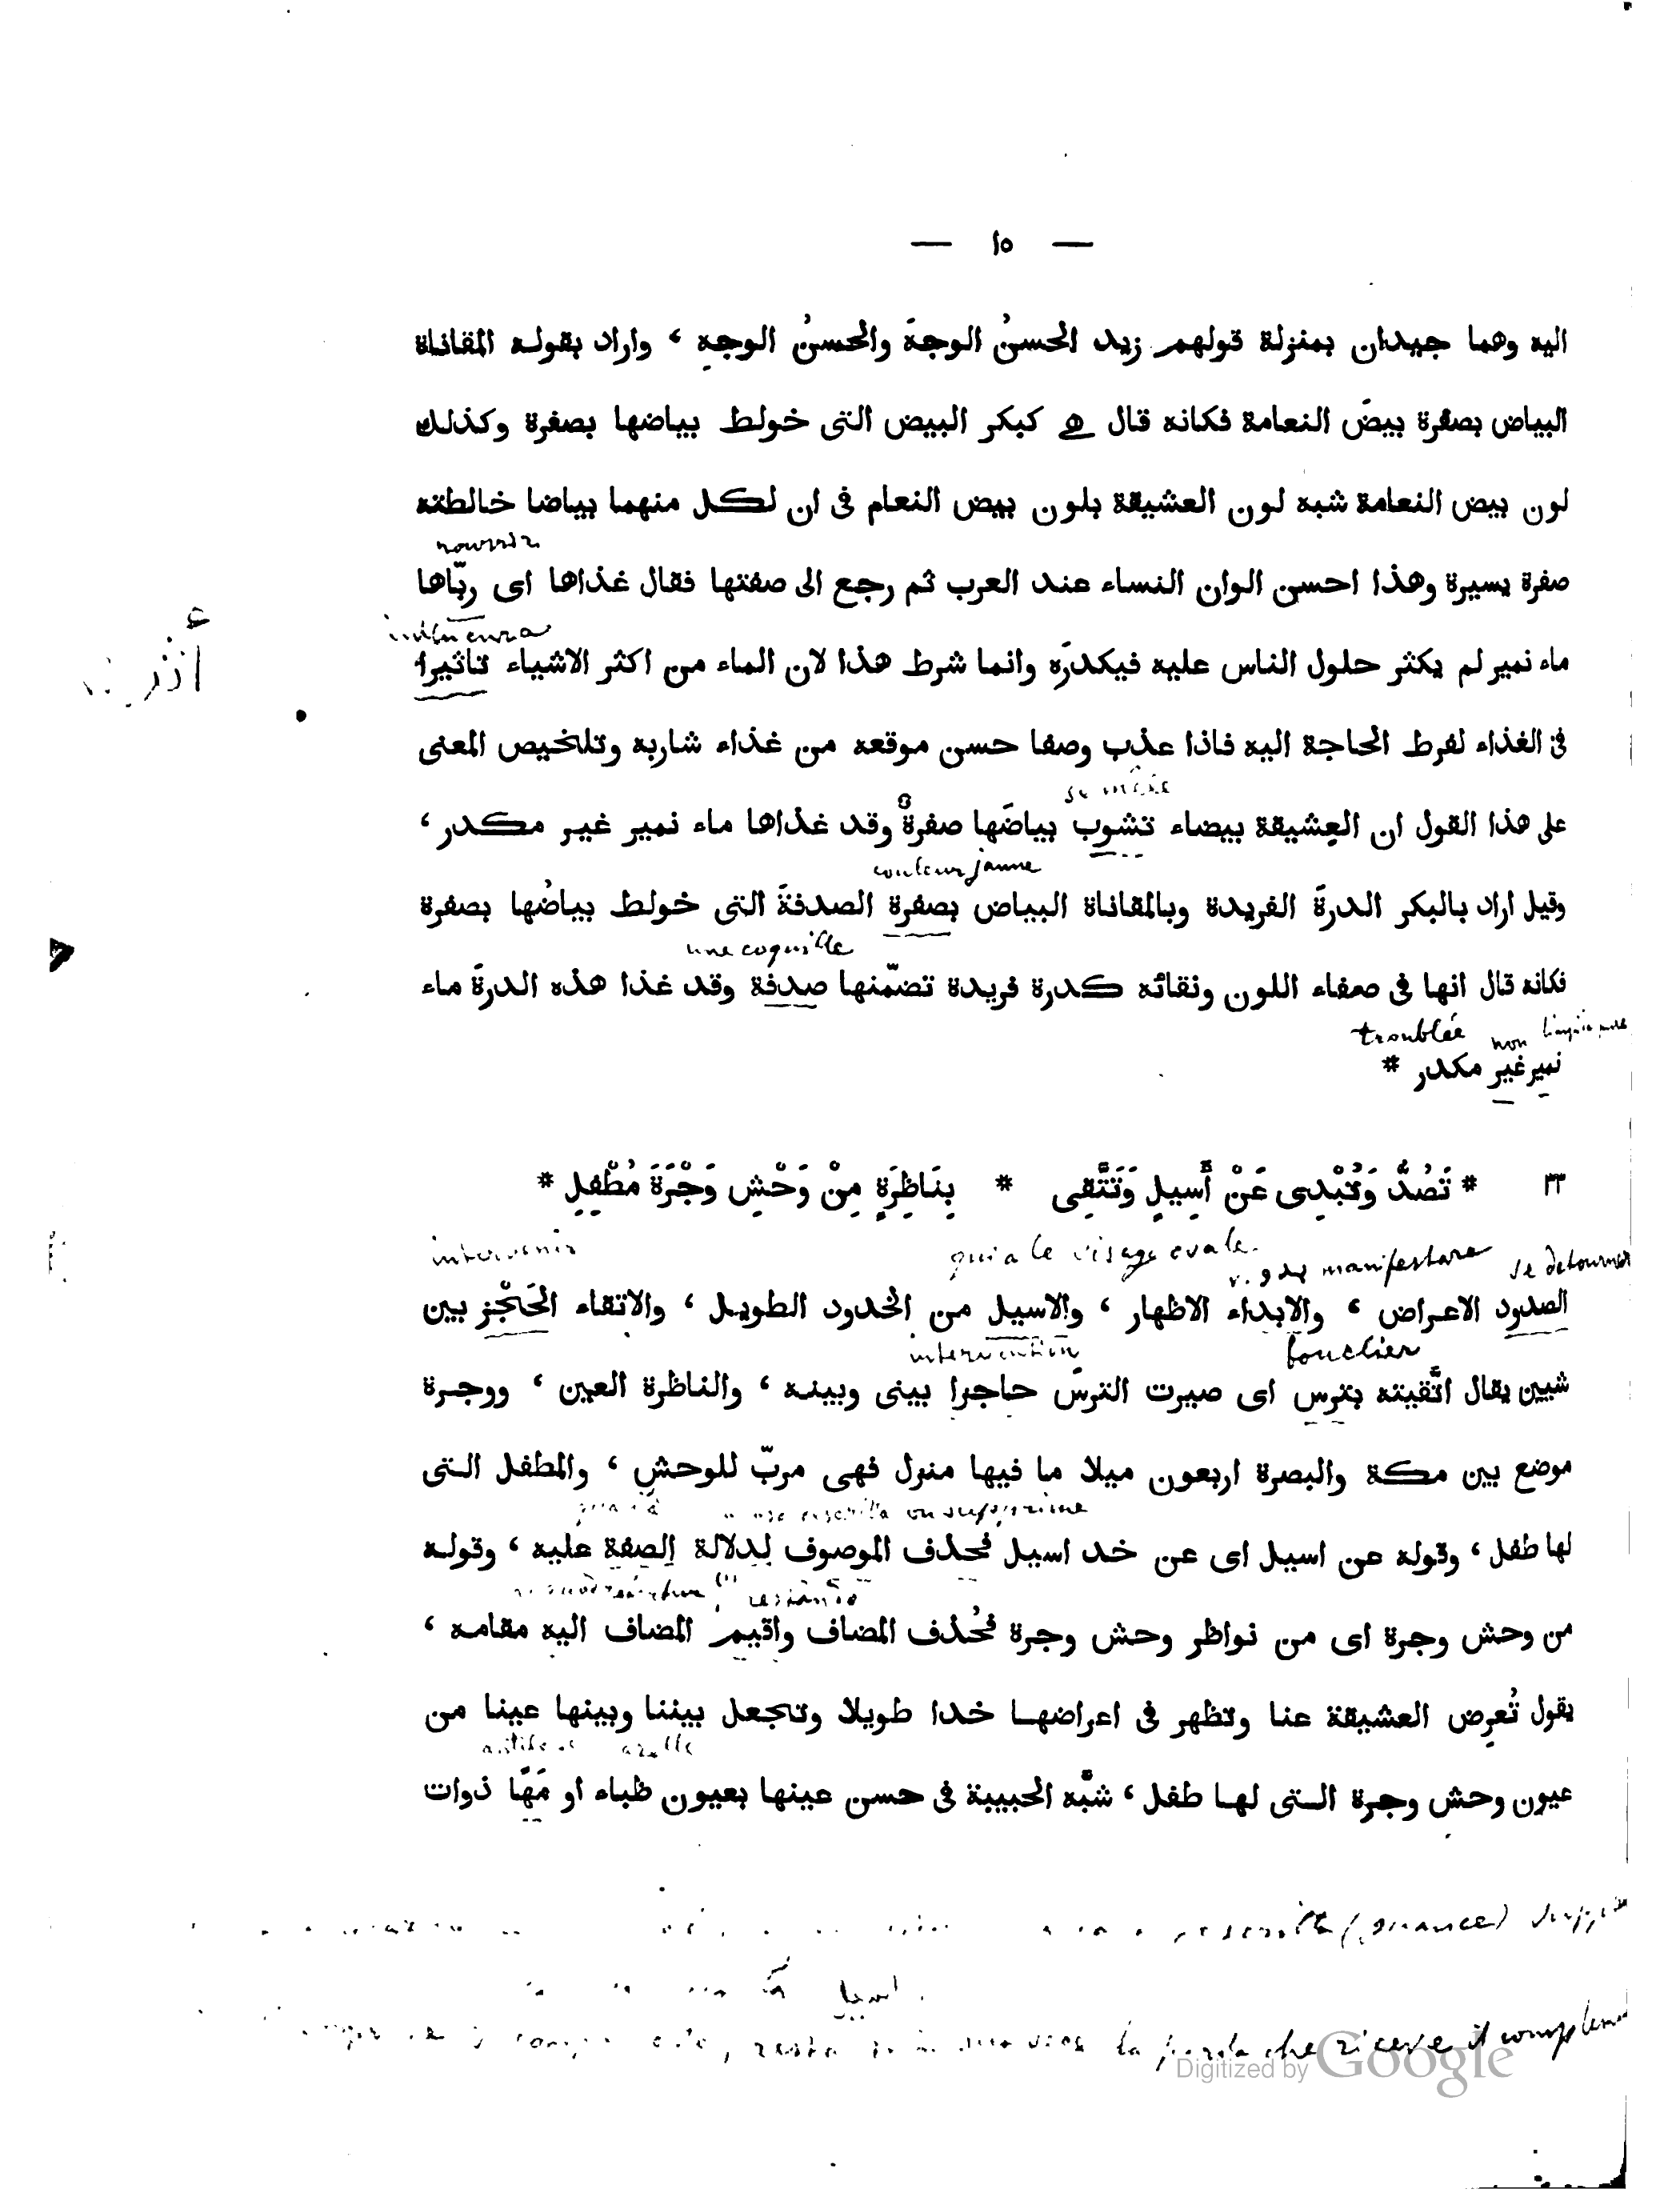 — ١٥ —
اليه وهما جيدان بمنزلة قولهم زيد الحسنُ الوجهَ والحسنُ الوجهِ ، واراد بقوله المقاناة
البياض بصفرة بيضَ النعامة فكانه قال هي كبكر البيض التى خولط بياضها بصفرة وكذلك
لون بيض النعامة شبه لون العشيقة بلون بيض النعام فى ان لكل منهما بياضا خالطته
nourrir
صفرة يسيرة وهذا احسن الوان النساء عند العرب ثم رجع الى صفتها فقال غذاها اى ربّاها
influenza
ماء نمير لم يكثر حلول الناس عليه فيكدرَه وانما شرط هذا لان الماء من اكثر الاشياء تاثيرا
فى الغذاء لفرط الحاجة اليه فاذا عذب وصفا حسن موقعه من غذاء شاربه وتلخيص المعنى
على هذا القول ان العشيقة بيضاء تشوب بياضَها صفرةٌ وقد غذاها ماء نمير غير مكدر ،
couleur jaune
وقيل اراد بالبكر الدرةَ الفريدة وبالمقاناة البياض بصفرة الصدفةَ التى خولط بياضُها بصفرة
une coquille
فكانه قال انها فى صفاء اللون ونقائه كدرة فريدة تضمّنها صدفة وقد غذا هذه الدرةَ ماء
troublée non
نمير غير مكدر *
٣٣ * تَصُدُّ وَتُبْدِى عَنْ أَسِيلٍ وَتَتَّقِى * بِنَاظِرَةٍ مِنْ وَحْشِ وَجْرَةَ مُطْفِلِ *
intervenir qui a le visage ovale. manifestare se detourner
الصدود الاعراض ، والابداء الاظهار ، والاسيل من الخدود الطويل ، والاتقاء الحَجْز بين
intervention bouclier
شيين يقال اتَّقيته بترس اى صيرت الترسَ حاجزا بينى وبينه ، والناظرة العين ، ووجرة
موضع بين مكة والبصرة اربعون ميلا ما فيها منزل فهى مربّ للوحش ، والمطفل التى
on supprime
لها طفل ، وقوله عن اسيل اى عن خد اسيل فحذف الموصوف لدلالة الصفة عليه ، وقوله
من وحش وجرة اى من نواظر وحش وجرة فحُذف المضاف واقيم المضاف اليه مقامه ،
يقول تُعرِض العشيقة عنا وتظهر فى اعراضها خدا طويلا وتجعل بيننا وبينها عينا من
عيون وحش وجرة التى لها طفل ، شبَّه الحبيبة فى حسن عينها بعيون ظباء او مَهًا ذوات
اسيل
che riceve il
Digitized by Google